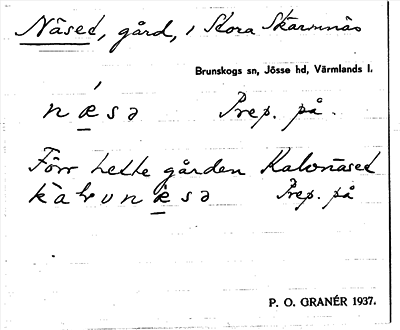 Näset, gård, i Stora Skärmnäs
Brunskogs sn, Jösse hd, Värmlands l.
næ̀sə Prep. på.
Förr hette gården Kalvnäset
Prep. på
P. O. GRANÉR 1937.